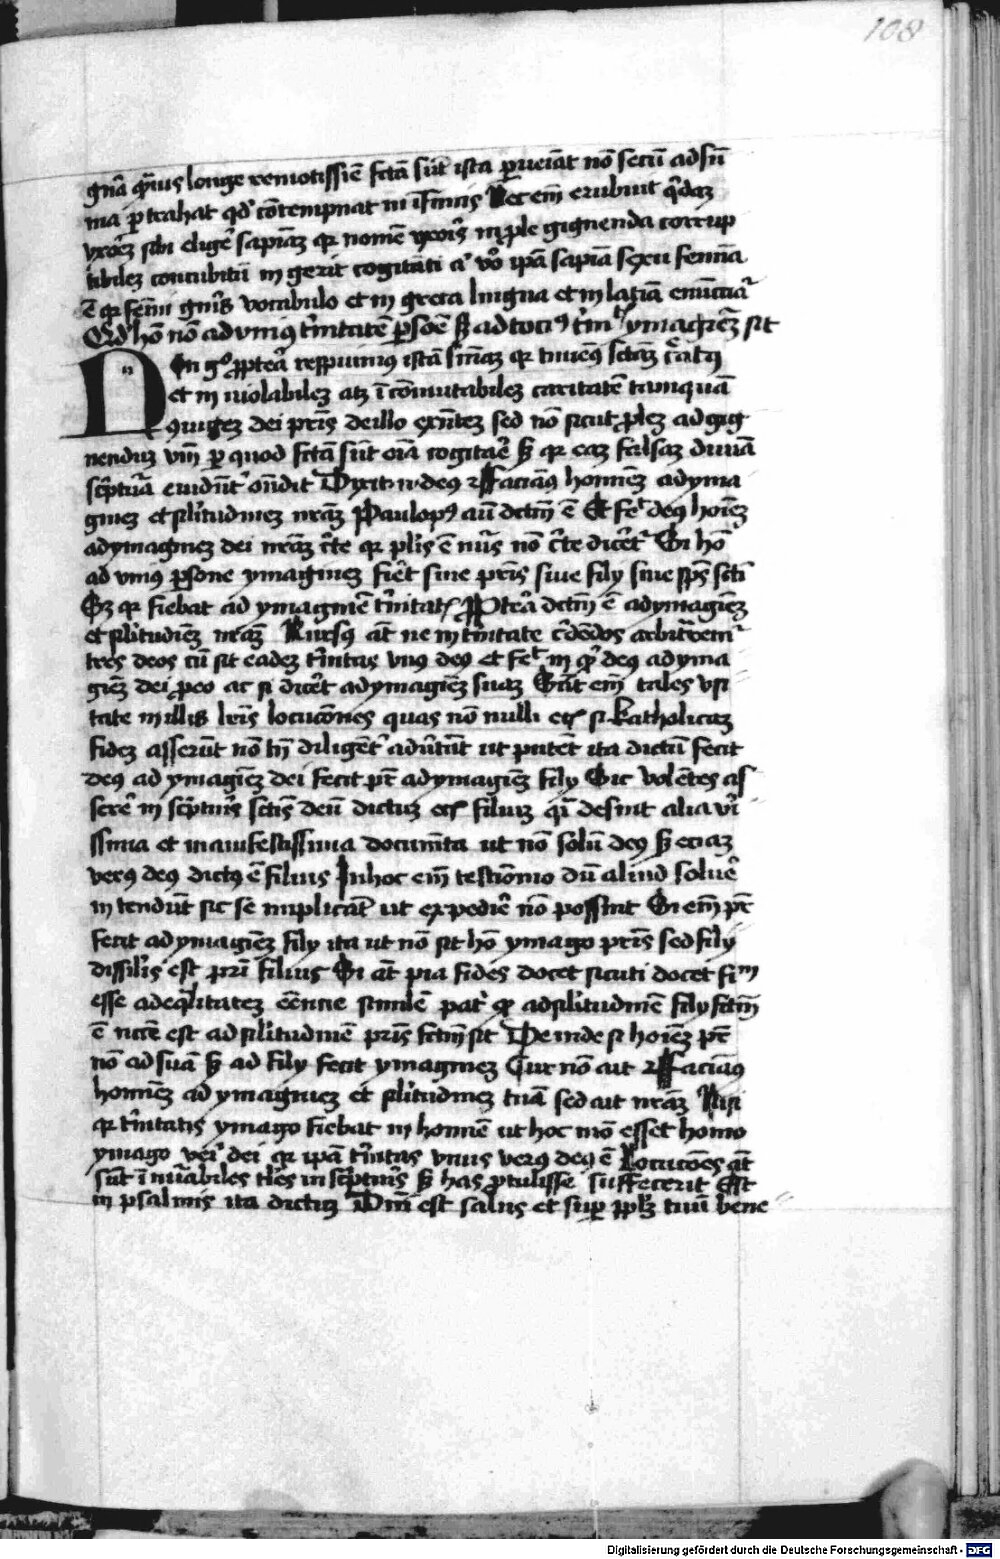 108
gnā prius longe remotissiē sctā sūt ista p̄ueiāt nō secū ad sū
ma p̄trahat qd̄ cōtempnat in īfimis Nec em̄ erubuit qͥdaz
vxorē sibi eligē sapiāz qr nomē vxoris in ple gignenda corrup
tibilez concubitū in gerit cogitāti aͨ vō ipā sapiā sexu femīa
ē qr femī gnis̄ vocabulo et in greca lingua et in latia enūcciaͬ
Qd̄ hō nō ad vniꝰ tͥnitatē p̄soē sꝫ ad tociꝰ tͥnit ymagiēz sit
Non gͦ ꝓpteā respuimus istā sn̄iaz qr timemꝰ sctāz cāitatz
et in uiolabilez atz īcōmutabilez caritatē tamquā
9iugez dei pr̄is de illo exn̄tez sed nō sicut ꝓlez ad gig
nenduz vm̄ p quod sctā sūt oīa cogitaē sꝫ qr eaz falsaz diuīā
scͥptūa euidn̄t on̄dit Dixit n̄ deꝰ Faciāꝰ homīez ad yma
ginez et silitudinez nrāz Paulopꝰ aū dc̄m ē Et fec̄ deꝰ hoīez
ad ymaginez dei nrāz cͥte qr plis̄ ē nūs nō cͥte dicēt Si hō
ad vniꝰ p̄sone ymaginez fiēt siue pr̄is siue filij siue sps̄ scī
Sz qr fiebat ad ymaginē tͥnitatꝭ Ppteā dc̄m ē ad ymagiēz
et silitudiēz nrāz Rursꝰ at̄ ne in tͥnitate cͥdēdos arbitremͬ
tres deos cū sit eadez tͥnitas vnꝰ deꝰ et fec̄ in qͥ deꝰ ad yma
giēz dei ꝓeo ac si dicēt ad ymagiēz suaz Sūt em̄ tales vsi
tate in illis lris̄ locucōnes quas nō nulli etꝭ si Katholicaz
fidez asserūt nō tn̄ diligēt aduertūt ut putēt ita dictū fecit
deꝰ ad ymagiēz dei fecit pr̄ ad ymagiēz filij Sic volētes as
serē in scͥpturis sctis̄ deū dictuz eē filiuz qͣ desint alia vͥi
ssima et manifestissima docum̄ta ut nō solū deꝰ sꝫ eciaz
verꝰ deꝰ dictꝰ ē filius In hoc em̄ testiōnio dū aliud soluē
in tendūt sic se implicāt ut expediē nō possint Si em̄ pr̄
fecit ad ymagiēz filij ita ut nō sit hō ymago pr̄is sed filij
dissilis̄ est prī filius Si at̄ pia fides docet sicuti docet fiᵐ
esse ad eqͣlitatez eēntie similē patͥ qͦ ad silitudinē filij fctm̄
ē nccē est ad silitudinē pr̄is fctm̄ sit Deinde si hoīez pr̄
nō ad suā sꝫ ad filij fecit ymaginez Cur nō ait Faciāꝰ
homīez ad ymaginez et silitudinez tuā sed ait nrāz Nisi
qr tͥnitatis ymago fiebat in homīe ut hoc mō esset homo
ymago veͥi dei qr ipā tͥnitas vnus verꝰ deꝰ ē Locucōes at̄
sūt īnuābiles tͣles in scͥpturis sꝫ has ꝓtulisse suffecerit Est
in psalmis ita dictuz Dnī est salus et sup̄ pplz tuū bene
Digitalisierung gefördert durch die Deutsche Forschungsgemeinschaft - DFG